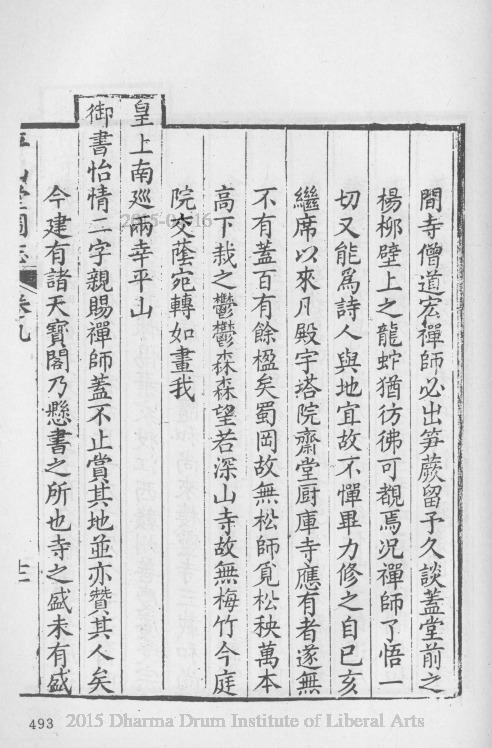 間寺僧道宏禪師必出笋蕨留予久談蓋堂前之
楊柳壁上之龍蛇猶彷彿可覩焉况禪師了悟一
切又能爲詩人與地宜故不憚畢力修之自己亥
繼席以來凡殿宇塔院齋堂厨庫寺應有者遂無
不有蓋百有餘楹矣蜀岡故無松師覓松秧萬本
高下栽之鬱鬱森森望若深山寺故無梅竹今庭
院交蔭宛轉如畫我
皇上南廵兩幸平山
御書怡情二字親賜禪師蓋不止賞其地並亦贊其人矣
今建有諸天寶閣乃懸書之所也寺之盛未有盛
平山堂圖志
卷九
十二
493
2015 Dharma Drum Institute of Liberal Arts